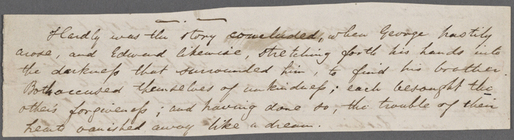 Hardly was the story concluded, when George hastily
arose, and Edward likewise, stretching forth his hands into
the darkness that surrounded him, to find his brother.
Both accused themselves of unkindness; each besought the
other's forgiveness; and having done so, the trouble of their
heart vanished away like a dream.